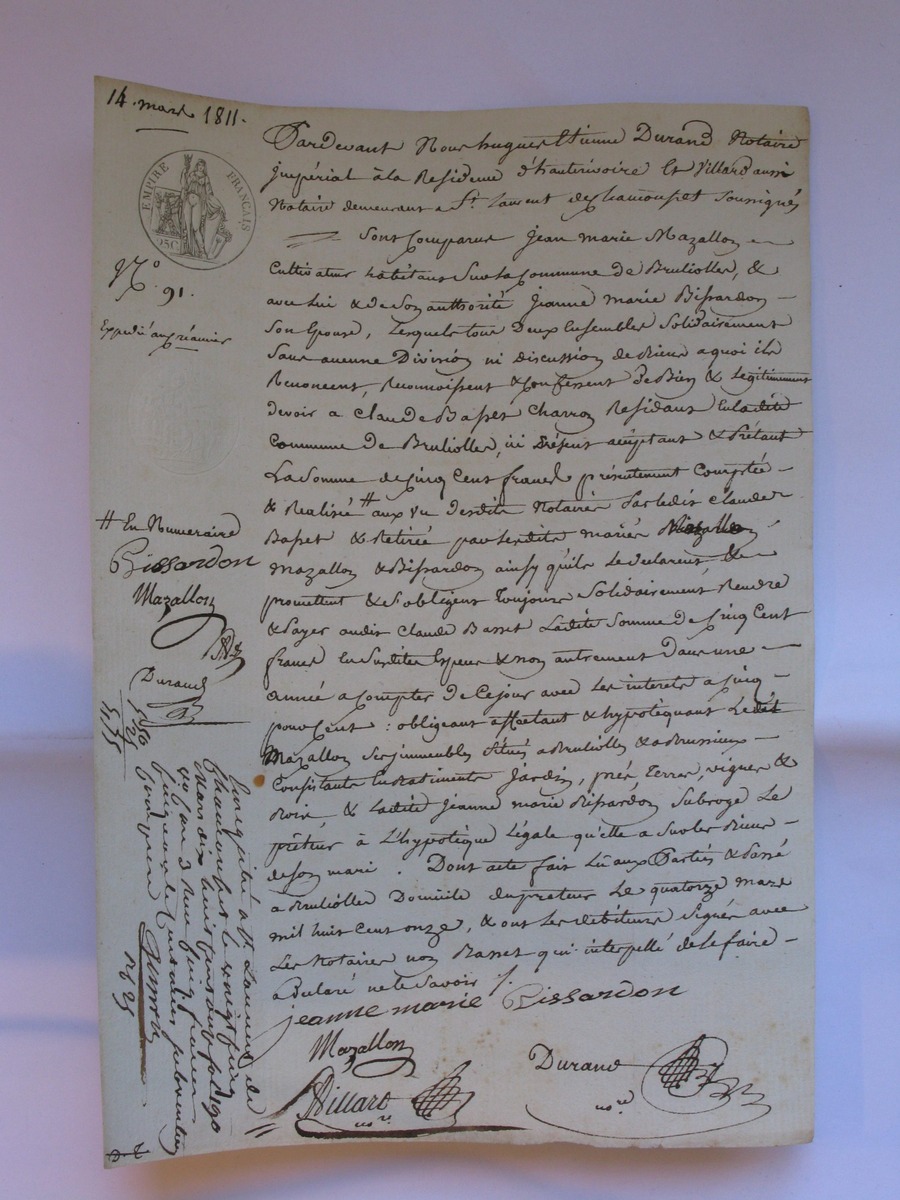 14. mars 1811.
EMPIRE FRANÇAIS
25C.
N.° 91.
Expedié au créancier
Pardevant Nous hugues Etienne Durand Notaire
Impérial à la Residence d'hauterivoire Et Villard aussi
Notaire demeurant a St. Laurent de chamousset soussignés
Sont Comparus Jean marie Mazallon
Cultivateur habitant Sur la Commune de Bruliolles, &
avec lui & de Son authorité Jeanne marie Bissardon
Son Epouse, Lesquels tous Deux Ensembles Solidairement
Sans aucune Division ni discussion de Biens a quoi ils
Renoncent, Reconnoissent & Confessent De Bien & Legitimement
devoir a Claude Basset Charron Residant En ladite
Commune de Brulioles, ici présent acceptant & Prétant
La Somme de Cinq Cent francs présentement Comptée
& Realisée # aux vu desdits Notaires Par ledit Claude
Basset & Retirée par lesdits mariés Mazallon
Mazallon & Bissardon ainsy qu'ils le declarent, &
promettent & s'obligent Toujours Solidairement Rendre
& Payer audit Claude Basset Ladite Somme de Cinq Cent
francs En Susdites Especes & non autrement Dans une
année a compter de Ce jour avec Les interets a Cinq
pour Cent : obligeant affectant & hypotequant Ledit
Mazallon Ses immeubles Situés a Brulioles & a Brussieux
Consistants En Batiments Jardin, prés Terres, vignes &
Bois & Ladite Jeanne marie Bissardon Subroge Le
prêteur à L'hypotèque Légale qu'elle a Sur les Biens
de Son mari. Dont acte fait Lu aux Parties & Passé
a Brulioles Domicile du preteur Le quatorze mars
mil huit Cent onze, & ont Les debiteurs Signés avec
Les Notaires non Basset qui interpellé de le faire
a Declaré ne le Savoir /.
jeanne marie Bissardon
Mazallon
Villard
nore
Durand
nore
# En Numeraire
Bissardon
Mazallon
Durand
5 50
25
5,75
Enregistré a St Laurent de
Chamousset le vingt deux
Mars dix huit cent onze fol. 190